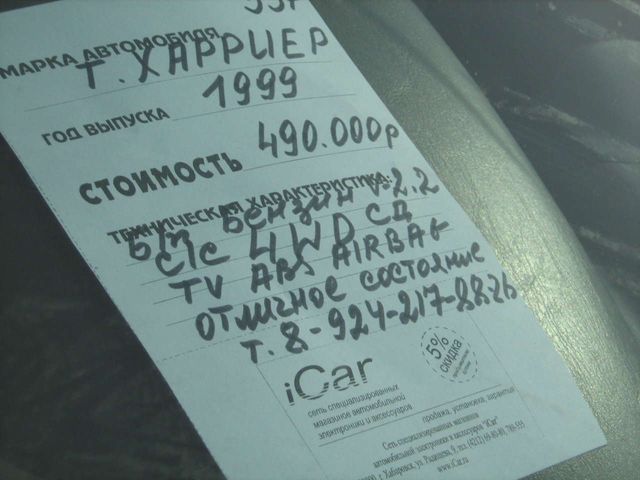 МАРКА АВТОМОБИЛЯ
Т. ХАРРИЕР
ГОД ВЫПУСКА 1999
СТОИМОСТЬ 490.000р
ТЕХНИЧЕСКАЯ ХАРАКТЕРИСТИКА:
Б/П БЕНЗИН V-2,2
С/С 4WD СД
TV ABS AIRBAG
ОТЛИЧНОЕ СОСТОЯНИЕ
Т. 8-924-217-8826
iCar
5%
СКИДКА
сеть специализированных
магазинов автомобильной
электроники и аксессуаров
продажа, установка, гарантия
Сеть специализированных магазинов
автомобильной электроники и аксессуаров "iCar"
г. Хабаровск, ул. Радищева, 9, тел. (4212)
www.iCar.ru